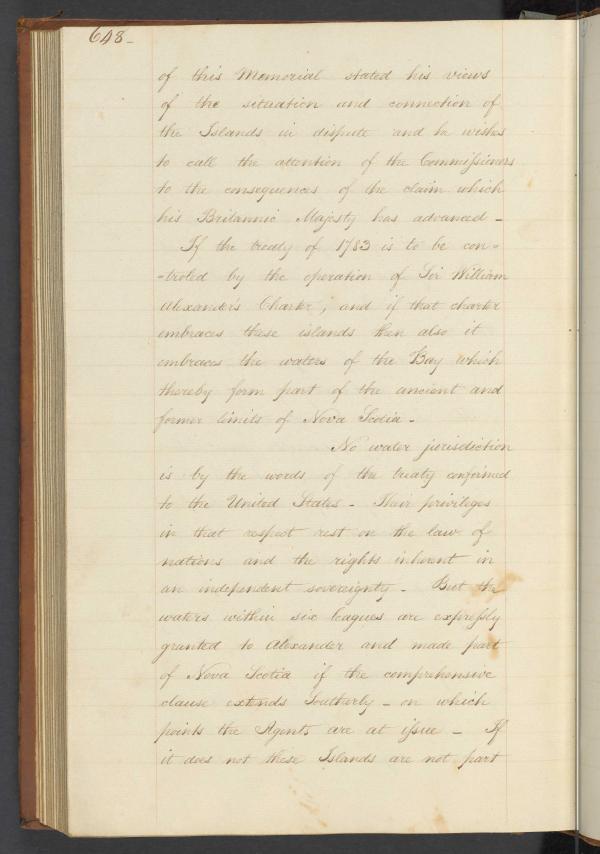 648-
of this Memorial stated his views
of the situation and connection of
the Islands in dispute and he wishes
to call the attention of the Commissioners
to the consequences of the claim which
his Britannic Majesty has advanced -
If the treaty of 1783 is to be con=
=troled by the operation of Sir William
Alexander's Charter, and if that charter
embraces these islands then also it
embraces the waters of the Bay which
thereby form part of the ancient and
former limits of Nova Scotia -
No water jurisdiction
is by the words of the treaty confirmed
to the United States - Their privileges
in that respect rest on the law of
nations and the rights inherent in
an independent sovereignty - But the
waters within six leagues are expressly
granted to Alexander and made part
of Nova Scotia if the comprehensive
clause extends Southerly - on which
points the Agents are at issue - If
it does not these Islands are not part